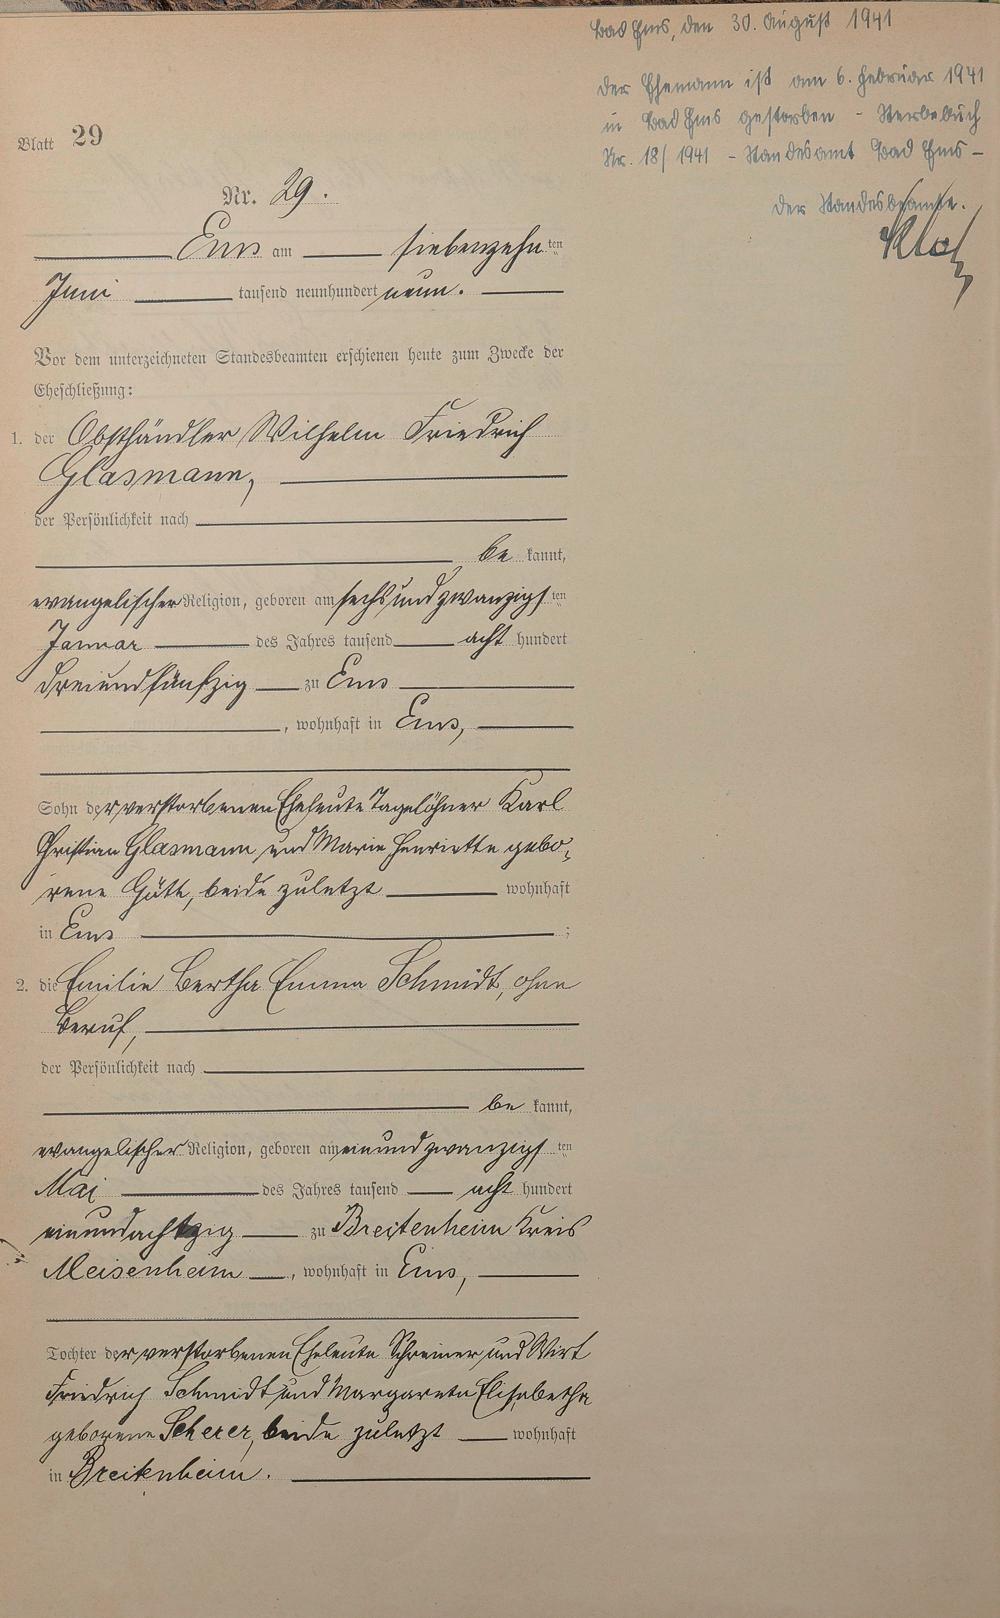 Bad Ems, den 30. August 1941
Der Ehemann ist am 6. Februar 1941
in Bad Ems gestorben - Sterbebuch
Nr. 18/1941 - Standesamt Bad Ems -
Der Standesbeamte.
Blatt 29
Nr. 29.
Ems am siebenzehnten
Juni tausend neunhundert neun.
Vor dem unterzeichneten Standesbeamten erschienen heute zum Zwecke der
Eheschließung:
1. der Obsthändler Wilhelm Friedrich
Glasmann,
der Persönlichkeit nach
bekannt,
evangelischer Religion, geboren am sechsundzwanzigsten
Januar des Jahres tausend acht hundert
dreiundfünfzig zu Ems
, wohnhaft in Ems,
Sohn der verstorbenen Eheleute Tagelöhner Karl
Christian Glasmann und Marie Henriette gebo-
rene Güth, beide zuletzt wohnhaft
in Ems ;
2. die Emilie Bertha Emma Schmidt, ohne
Beruf,
der Persönlichkeit nach
bekannt,
evangelischer Religion, geboren am einundzwanzigsten
Mai des Jahres tausend acht hundert
einundachtzig zu Breitenheim Kreis
Meisenheim, wohnhaft in Ems,
Tochter der verstorbenen Eheleute Schreiner und Wirt
Friedrich Schmidt und Margareta Elisabetha
geborene Scherer, beide zuletzt wohnhaft
in Breitenheim.